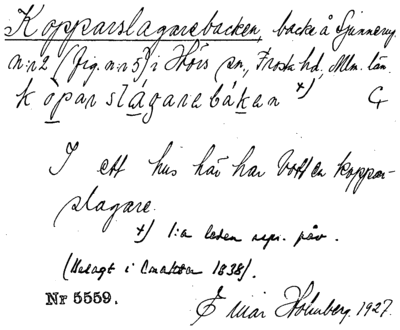 Kopparslagarebacken, backe å Sjunneryg
n:r 2 (fig. n:r 5) i Hörs sn, Frosta hd, Mlm. län.
kǫpar slágarebákan +) G
I ett hus här har bott en koppar-
slagare.
+) 1:a leden repr. påv.
(Belagt i 1838).
Nr 5559.
Einar Holmberg 1927.